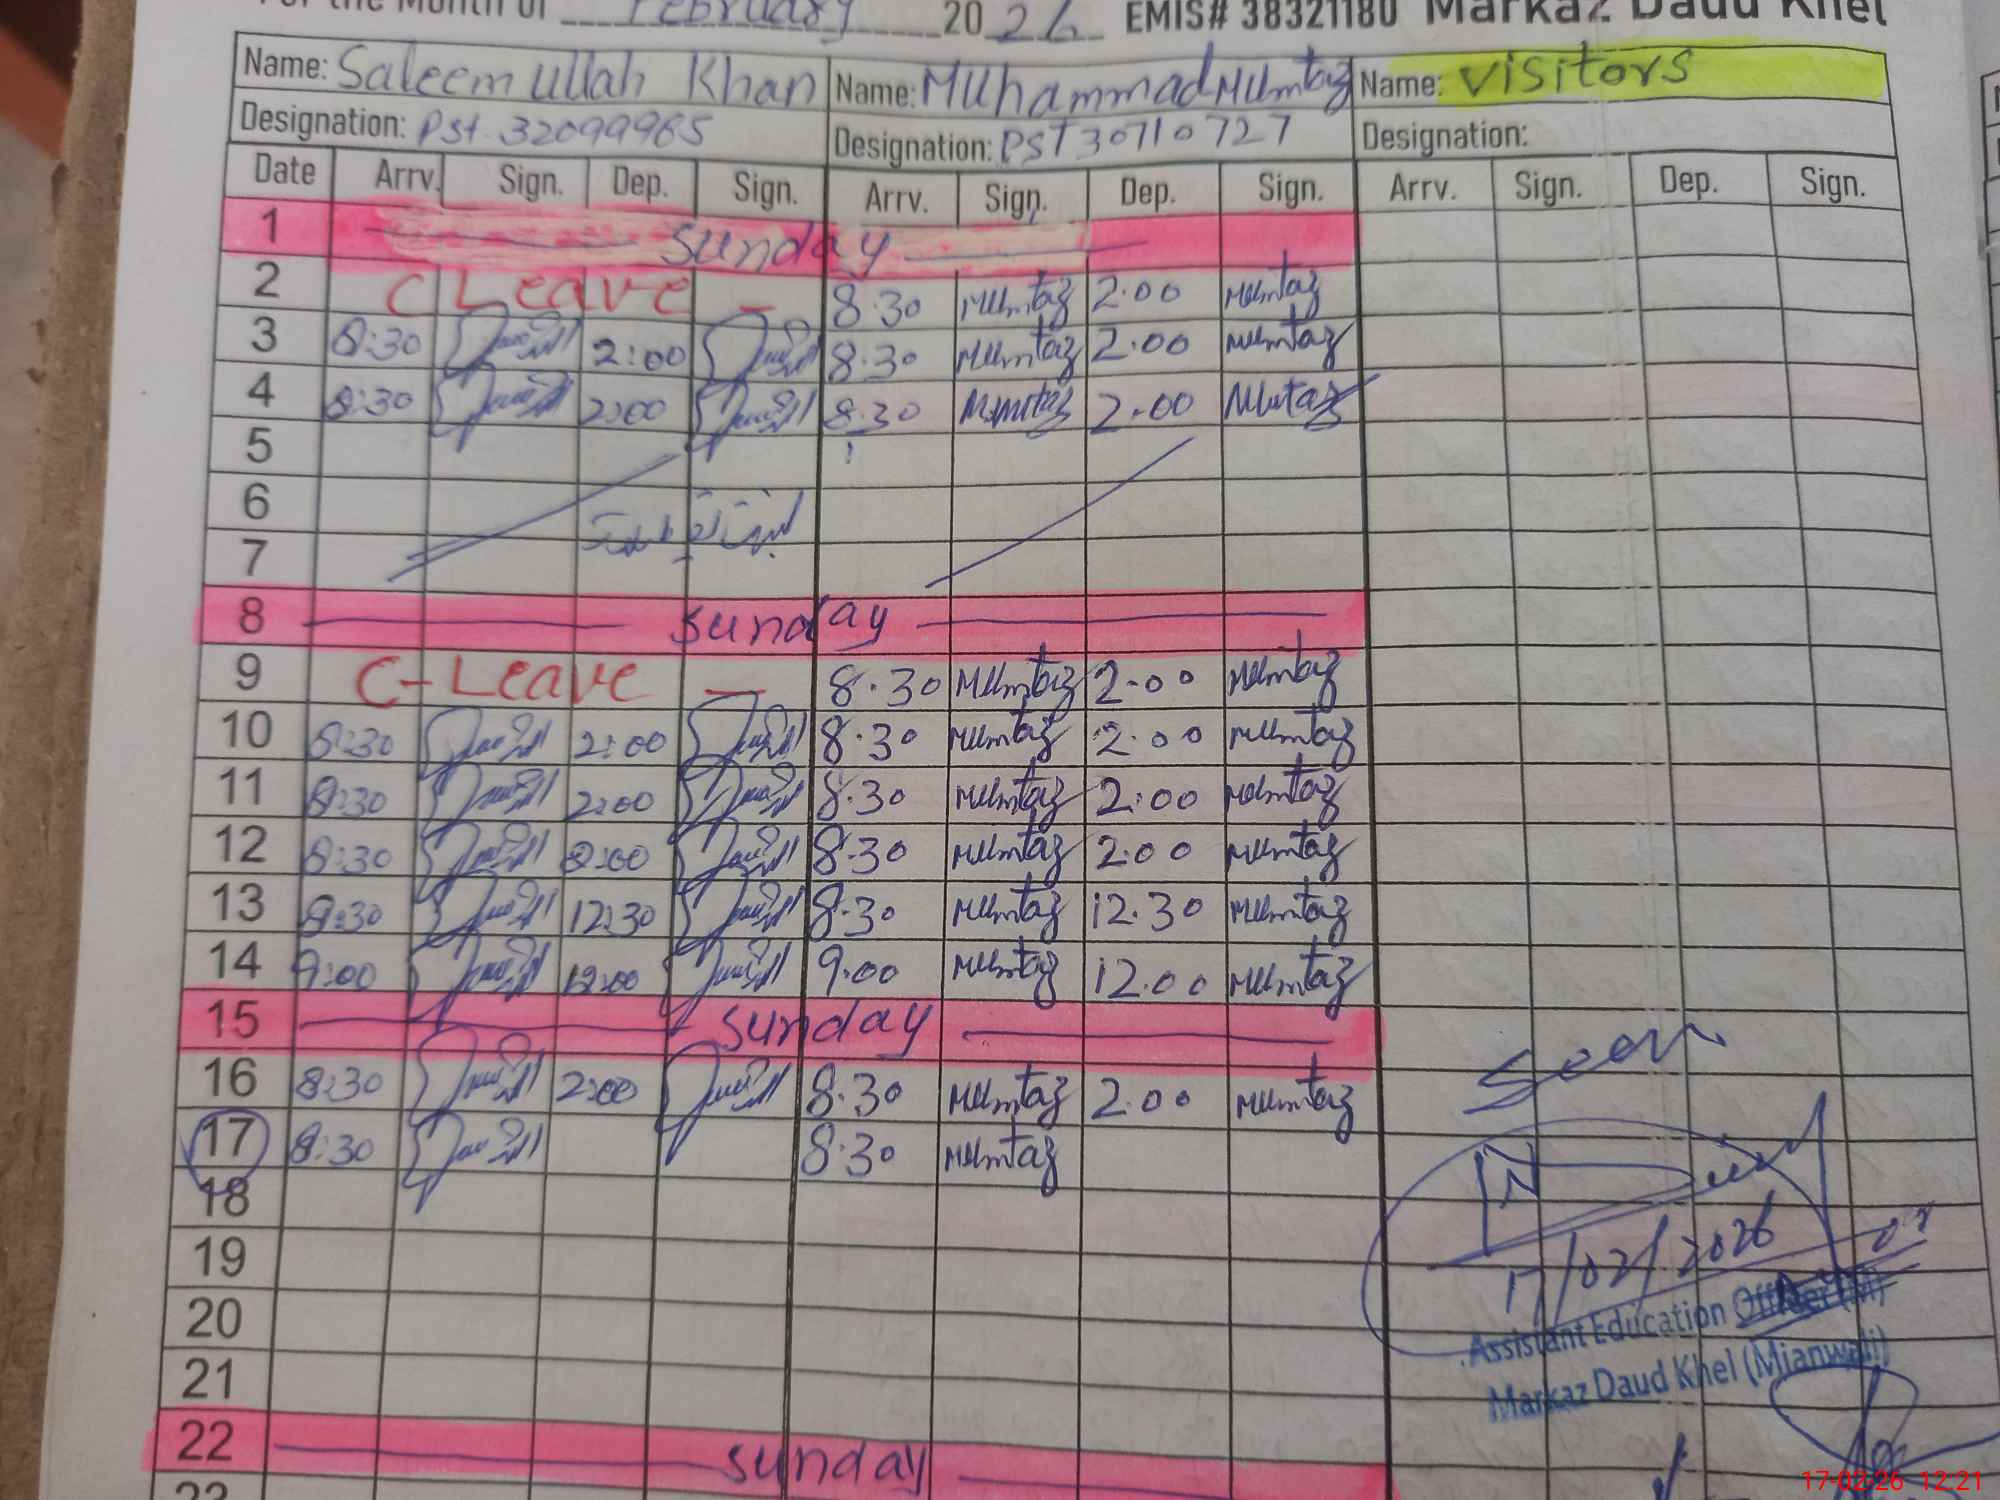 For the Month of February 2026 EMIS# 38321180 Markaz Daud Khel
Name: Saleem ullah Khan Name: Muhammad Mumtaz Name: Visitors
Designation: Pst 32099985 Designation: PST 30710727 Designation:
Date Arrv. Sign. Dep. Sign. Arrv. Sign. Dep. Sign. Arrv. Sign. Dep. Sign.
1 Sunday
2 C Leave - 8.30 Mumtaz 2.00 Mumtaz
3 8:30 2:00 8.30 Mumtaz 2.00 Mumtaz
4 8:30 2:00 8.30 Mumtaz 2.00 Mutaz
5
6
7
8 Sunday
9 C-Leave - 8.30 Mumtaz 2.00 Mumtaz
10 8:30 2:00 8.30 Mumtaz 2.00 Mumtaz
11 8:30 2:00 8.30 Mumtaz 2:00 Mumtaz
12 8:30 2:00 8.30 Mumtaz 2.00 Mumtaz
13 8:30 12:30 8.30 Mumtaz 12.30 Mumtaz
14 9:00 12:00 9.00 Mumtaz 12.00 Mumtaz
15 Sunday
16 8:30 2:00 8.30 Mumtaz 2.00 Mumtaz
Seen
17 8:30 8.30 Mumtaz
18
19
17/02/2026
20
Assistant Education Officer (M)
21
Markaz Daud Khel (Mianwali)
22 Sunday
23
17-02-26 12:21